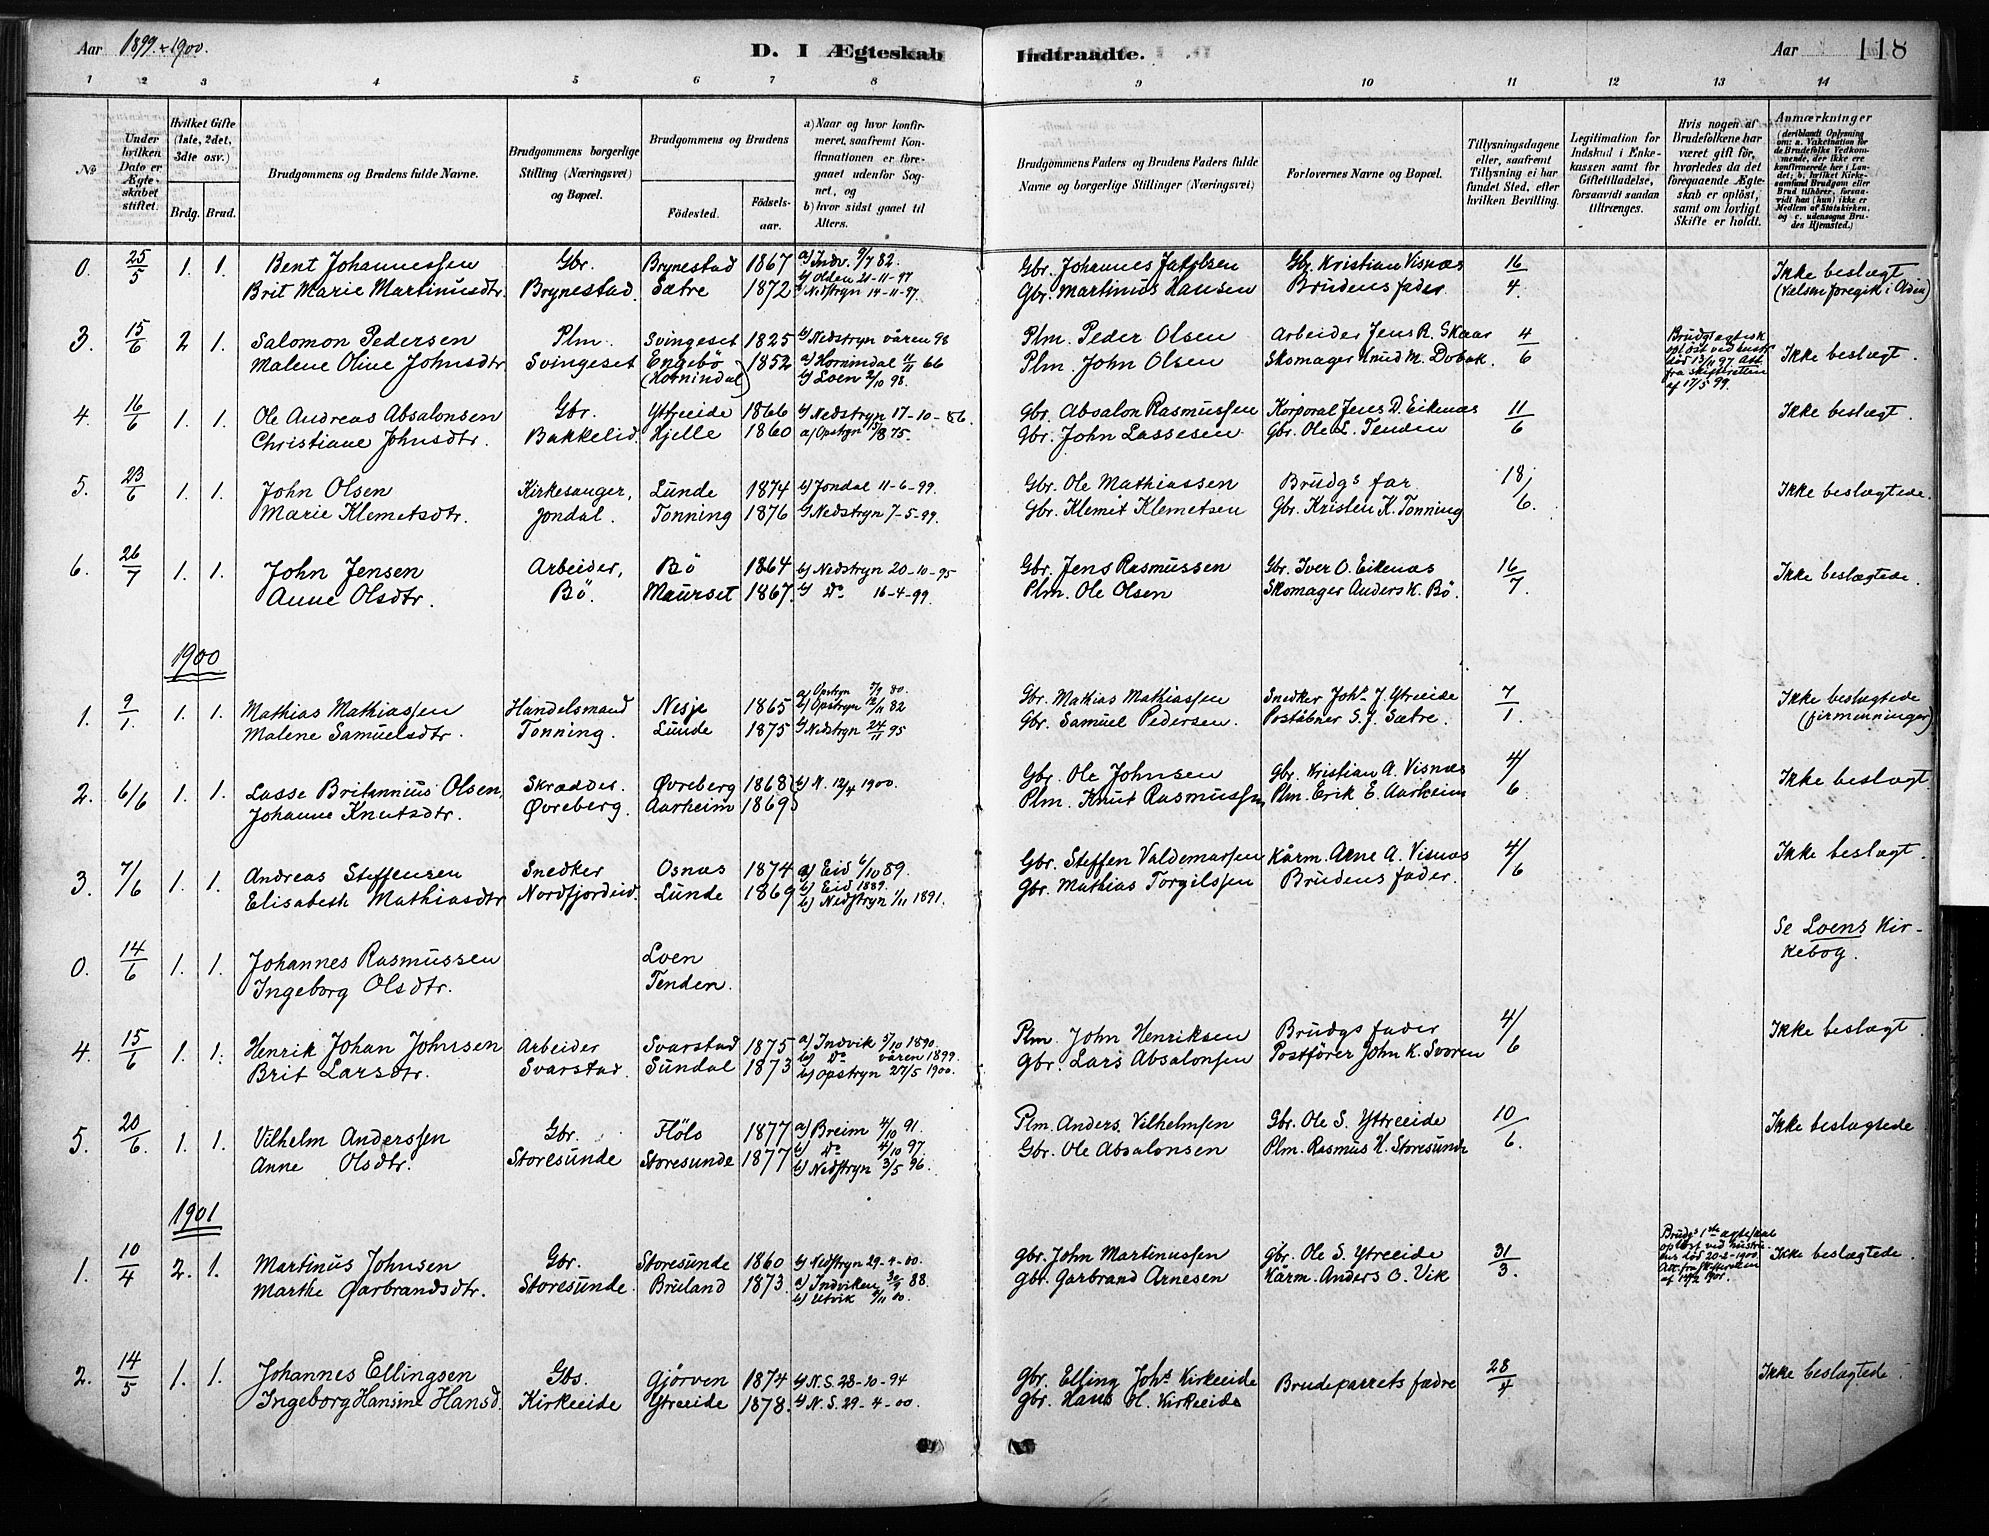 Aar 1899 & 1900.
D. I Ægteskab Indtraadte.
Aar 118
1 2 3 4 5 6 7 8 9 10 11 12 13 14
№
Under hvilken Dato er Ægteskabet stiftet.
Hvilket Gifte (1ste, 2det, 3dte osv.)
Brdg. Brud.
Brudgommens og Brudens fulde Navne.
Brudgommens borgerlige Stilling (Næringsvei) og Bopæl.
Brudgommens og Brudens
Fødested.
Fødselsaar.
a) Naar og hvor konfirmeret, saafremt Konfirmationen er foregaaet udenfor Sognet, og
b) hvor sidst gaaet til Alters.
Brudgommens Faders og Brudens Faders fulde Navne og borgerlige Stillinger (Næringsvei)
Forlovernes Navne og Bopæl.
Tillysningsdagene eller, saafremt Tillysning ei har fundet Sted, efter hvilken Bevilling.
Legitimation for Indskud i Enkekassen samt for Giftetilladelse, forsaavidt saadan tiltrænges.
Hvis nogen af Brudefolkene har været gift før, hvorledes da det foregaaende Ægteskab er opløst, samt om lovligt Skifte er holdt.
Anmærkninger (deriblandt Oplysning om: a. Vaksination for de Brudefolks Vedkommende, der ikke ere konfirmerede her i Landet; b. hvilket Kirkesamfund Brudgom eller Brud tilhører, forsaavidt han (hun) ikke er Medlem af Statskirken, og c. udensogns Brudes Hjemsted.)
0. 25/5 1. 1. Bent Johannessen Gbr. Brynestad 1867 a) Indv. 9/7 82. Gbr. Johannes Gbr. Kristian Visnæs 16/4. Ikke beslægt
b) Olden 21-11-97
Brit Marie Martinusdtr. Brynestad Sætre 1872 Nedstryn 14-11-97. Gbr. Martinus Hansen Brudens fader
3. 15/6 2 1. Salomon Pedersen Plm. Svingeset 1825 b) Nedstryn våren 98 Plm. Peder Olsen Arbeider Jens R. Skaar 4/6 Ikke beslægt.
Malene Oline Johnsdtr. Svingeset Engebö (Hornindal) 1852 a) Hornindal 11/11 66 Plm. John Olsen Skomager Knud M. Dvbak.
b) Loen 2/10 98.
af 17/5 99.
4. 16/6 1. 1. Ole Andreas Absalonsen Gbr. Ytreeide 1866 b) Nedstryn 17-10-86. Gbr. Absalon Rasmussen Korporal Jens D. Eikenæs 11/6 Ikke beslægt.
Christiane Johnsdtr. Bakkelid Hjelle 1860 a) Opstryn 15/8 75. Gbr. John Lassesen Gbr. Ole L. Tenden
5. 23/6 1. 1. John Olsen Kirkesanger, Lunde 1874 b) Jondal 11-6-99. Gbr. Ole Mathiassen Brudgs far 18/6. Ikke beslægtede.
Marie Klemetsdtr. Jondal. Tonning 1876 b) Nedstryn 7-5-99. Gbr. Klemet Klemetsen Gbr. Kristen K. Tonning
6. 26/7 1. 1. John Jensen Arbeider, Bö 1864 b) Nedstryn 20-10-95 Gbr. Jens Rasmussen Gbr. Iver O. Eikenæs 16/7. Ikke beslægtede.
Anne Olsdtr. Bö. Maurset 1867. b) Do 16-4-99. Plm. Ole Olsen Skomager Anders K. Bö.
1900
1. 9/1. 1. 1. Mathias Mathiassen Handelsmand Nesje 1865 a) Opstryn 5/9 80. b) Opstryn 12/11 82 Gbr. Mathias Mathiassen Snedker Johs. J. Ytreeide 7/1. Ikke beslægtede
Malene Samuelsdtr. Tonning. Lunde 1875 b) Nedstryn 24/11 95 Gbr. Samuel Pedersen. Poståbner S. J. Sætre. (firmenninger)
2. 6/6 1. 1. Lasse Britannius Olsen, Skrædder. Øvreberg 1868 b) N. 12/4 1900. Gbr. Ole Johnsen Gbr. Kristian A. Visnæs 4/6 Ikke beslægt
Johanne Knutsdtr. Øvreberg. Aarheim 1869 Plm. Knut Rasmussen Plm. Erik E. Aarheim
3. 7/6 1. 1. Andreas Steffensen Snedker Osnæs 1874 a) Eid 6/10 89. Gbr. Steffen Valdemarsen Kårm. Arne A. Visnæs 4/6 Ikke beslægt.
b) Eid 1889.
Elisabeth Mathiasdtr Nordfjordeid. Lunde 1869 b) Nedstryn 1/11 1891. Gbr. Mathias Torgilssen Brudens fader.
0. 14/6 1. 1. Johannes Rasmussen Loen Se Loens Kirkebog.
Ingeborg Olsdtr. Tenden.
4. 15/6 1. 1. Henrik Johan Johnsen Arbeider Svarstad 1875 a) Indvik 5/10 1890. Plm. John Henriksen Brudgs fader 4/6 Ikke beslægt.
b) Do våren 1899.
Brit Larsdtr. Svarstad. Sundal 1873 b) Opstryn 27/5 1900. Gbr. Lars Absalonsen Postförer John K. Svoren
5. 20/6. 1. 1. Vilhelm Anderssen Gbr. Flölo 1877 a) Breim 4/10 91. Plm. Anders Vilhelmsen Gbr. Ole S. Ytreeide 10/6. Ikke beslægtede
b) Do 4/10 97.
Anne Olsdtr. Storesunde Storesunde 1877 b) Nedstryn 3/5 96. Gbr. Ole Absalonsen Plm. Rasmus H. Storesunde
1901
1. 10/4 2. 1. Martinus Johnsen Gbr. Storesunde 1860 b) Nedstryn 29-4-00. Gbr. John Martinussen Gbr. Ole S. Ytreeide 31/3. Ikke beslægtede.
Marthe Garbrandsdtr. Storesunde. Bruland 1873. a) Indviken 88. Gbr. Garbrand Arnesen Kårm. Anders O. Vik
b) Utvik 00.
2. 14/5 1. 1. Johannes Ellingsen Gbs. Gjörven 1874 b) N.S. 28-10-94 Gbr. Elling Johs. Kirkeeide Brudeparrets fædre 28/4 Ikke beslægtede
Ingeborg Hansine Hansd. Kirkeeide Ytreeide 1878. b) N.S. 29-4-00. Gbr. Hans H. Kirkeeide